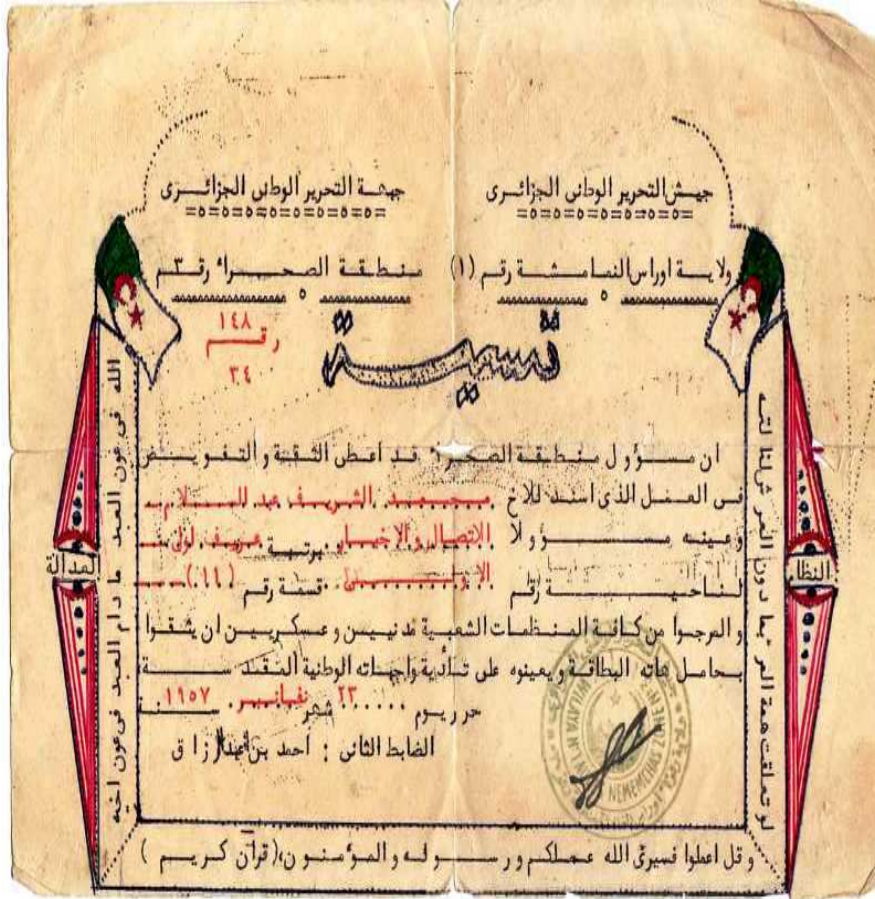 جيش التحرير الوطنى الجزائرى
جبهة التحرير الوطنى الجزائرى
ولاية اوراس النمامشة رقم (١)
منطقة الصحراء رقم ٣
رقم
١٤٨
٣٤
تسمية
ان مسؤول منطقة الصحراء قد أعطى الثقة و التفويض
فى العمل الذى اسند للاخ محمد الشريف عبد السلام
وعينه مسؤولا الاتصال والاخبار برتبة عريف اول
لناحية رقم الاولى قسمة رقم (١١)
و المرجوا من كافة المنظمات الشعبية مدنيين و عسكريين ان يثقوا
بحامل هاته البطاقة ويعينوه على تأدية واجباته الوطنية المقدسة
حرر يوم ٢٣ شهر نفانبير سنة ١٩٥٧
الضابط الثانى : احمد بن عبد الرزاق
وقل اعملوا فسيرى الله عملكم ورسوله والمؤمنون (قرآن كريم)
الله فى عون العبد ما دام العبد فى عون اخيه
العدالة
النظا
لو تعلقت همة المرء بما دون العرش
WILAYA N°1
NEMEMCHAS